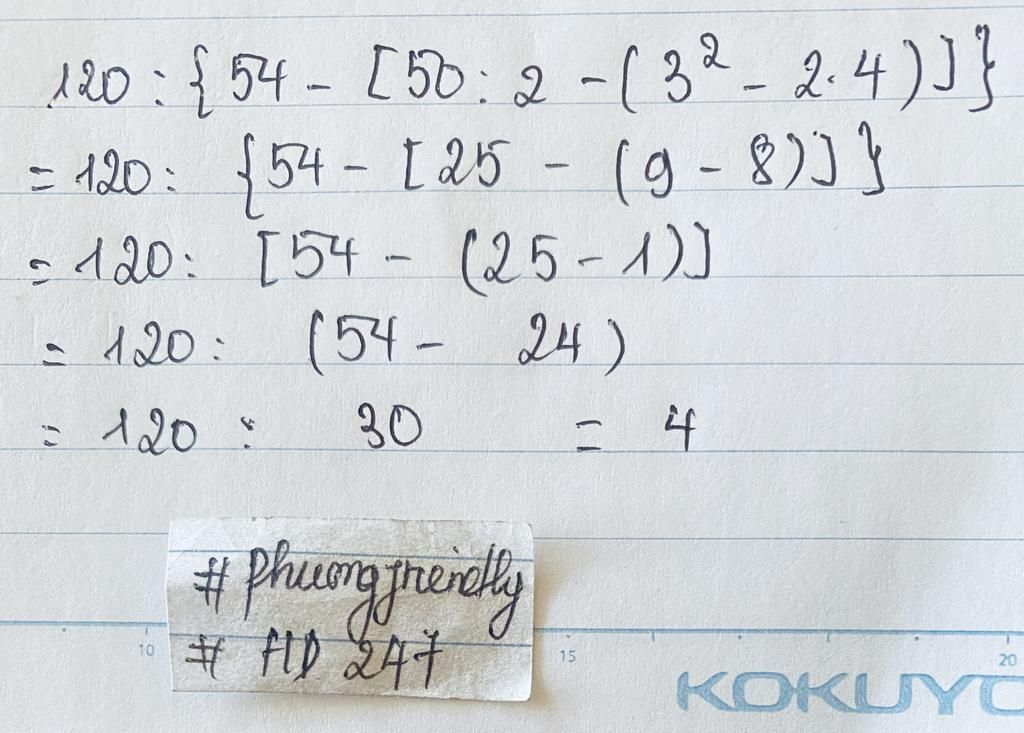 120 : { 54 - [ 50 : 2 - ( 3² - 2 . 4 ) ] }
= 120 : { 54 - [ 25 - ( 9 - 8 ) ] }
= 120 : [ 54 - ( 25 - 1 ) ]
= 120 : ( 54 - 24 )
= 120 : 30 = 4
# phuongfriendly
# HD 247
10 15 20
KOKUYO